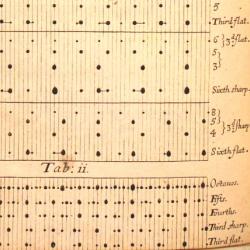 5
Third flat.
6
5 } 3d flat.
3
Sixth sharp.
8
5 } 3d sharp
4
Sixth flat.
Tab: ii.
Octaves.
Fifts.
Fourths.
Third sharp
Third flat.